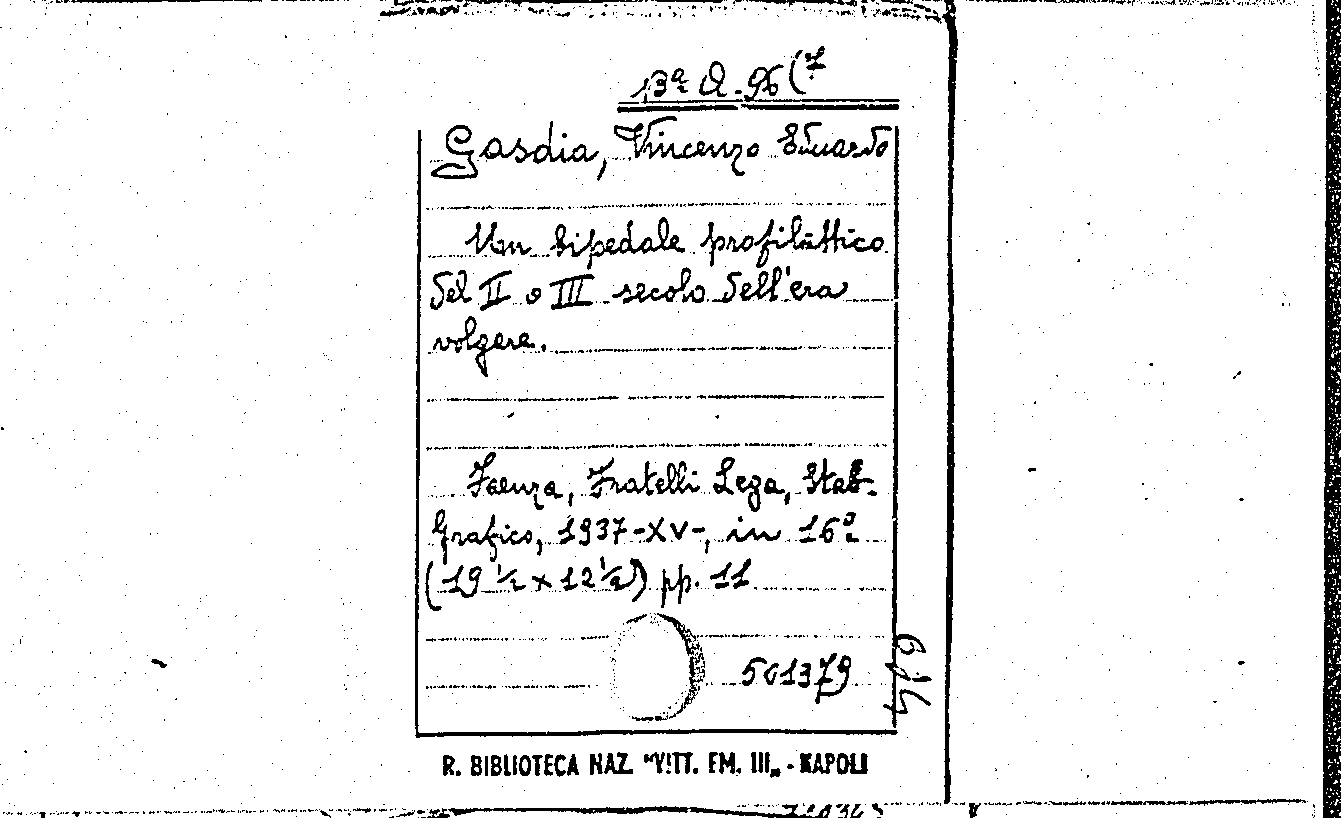 13ª Q. 96 (7
Gasdia, Vincenzo Eduardo
Un bipedale profilattico
del II o III secolo dell'era
volgare.
Faenza, Fratelli Lega, Stab.
Grafico, 1937-XV-, in 16º
(19 ½ x 12 ½) pp. 11
501379
R. BIBLIOTECA NAZ. "VITT. EM. III„ - NAPOLI